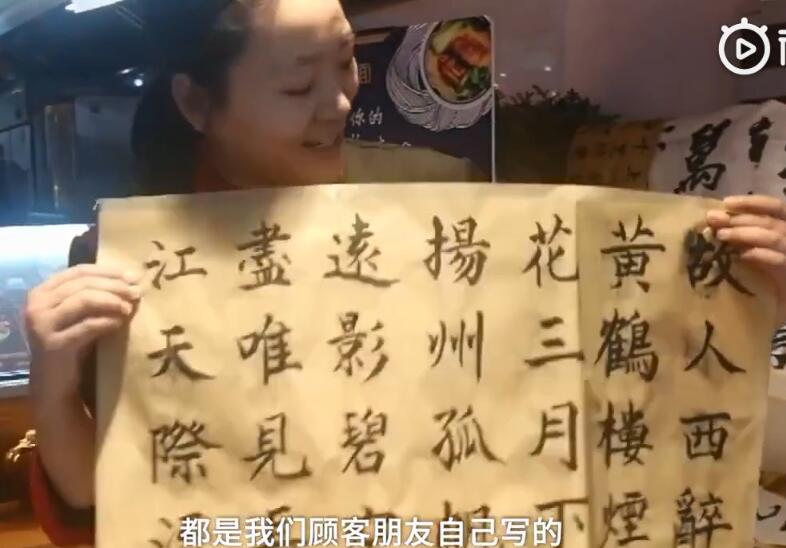 故人西辭
黃鶴樓煙
花三月下
揚州孤帆
遠影碧空
盡唯見長
江天際流
萬
你的
都是我们顾客朋友自己写的